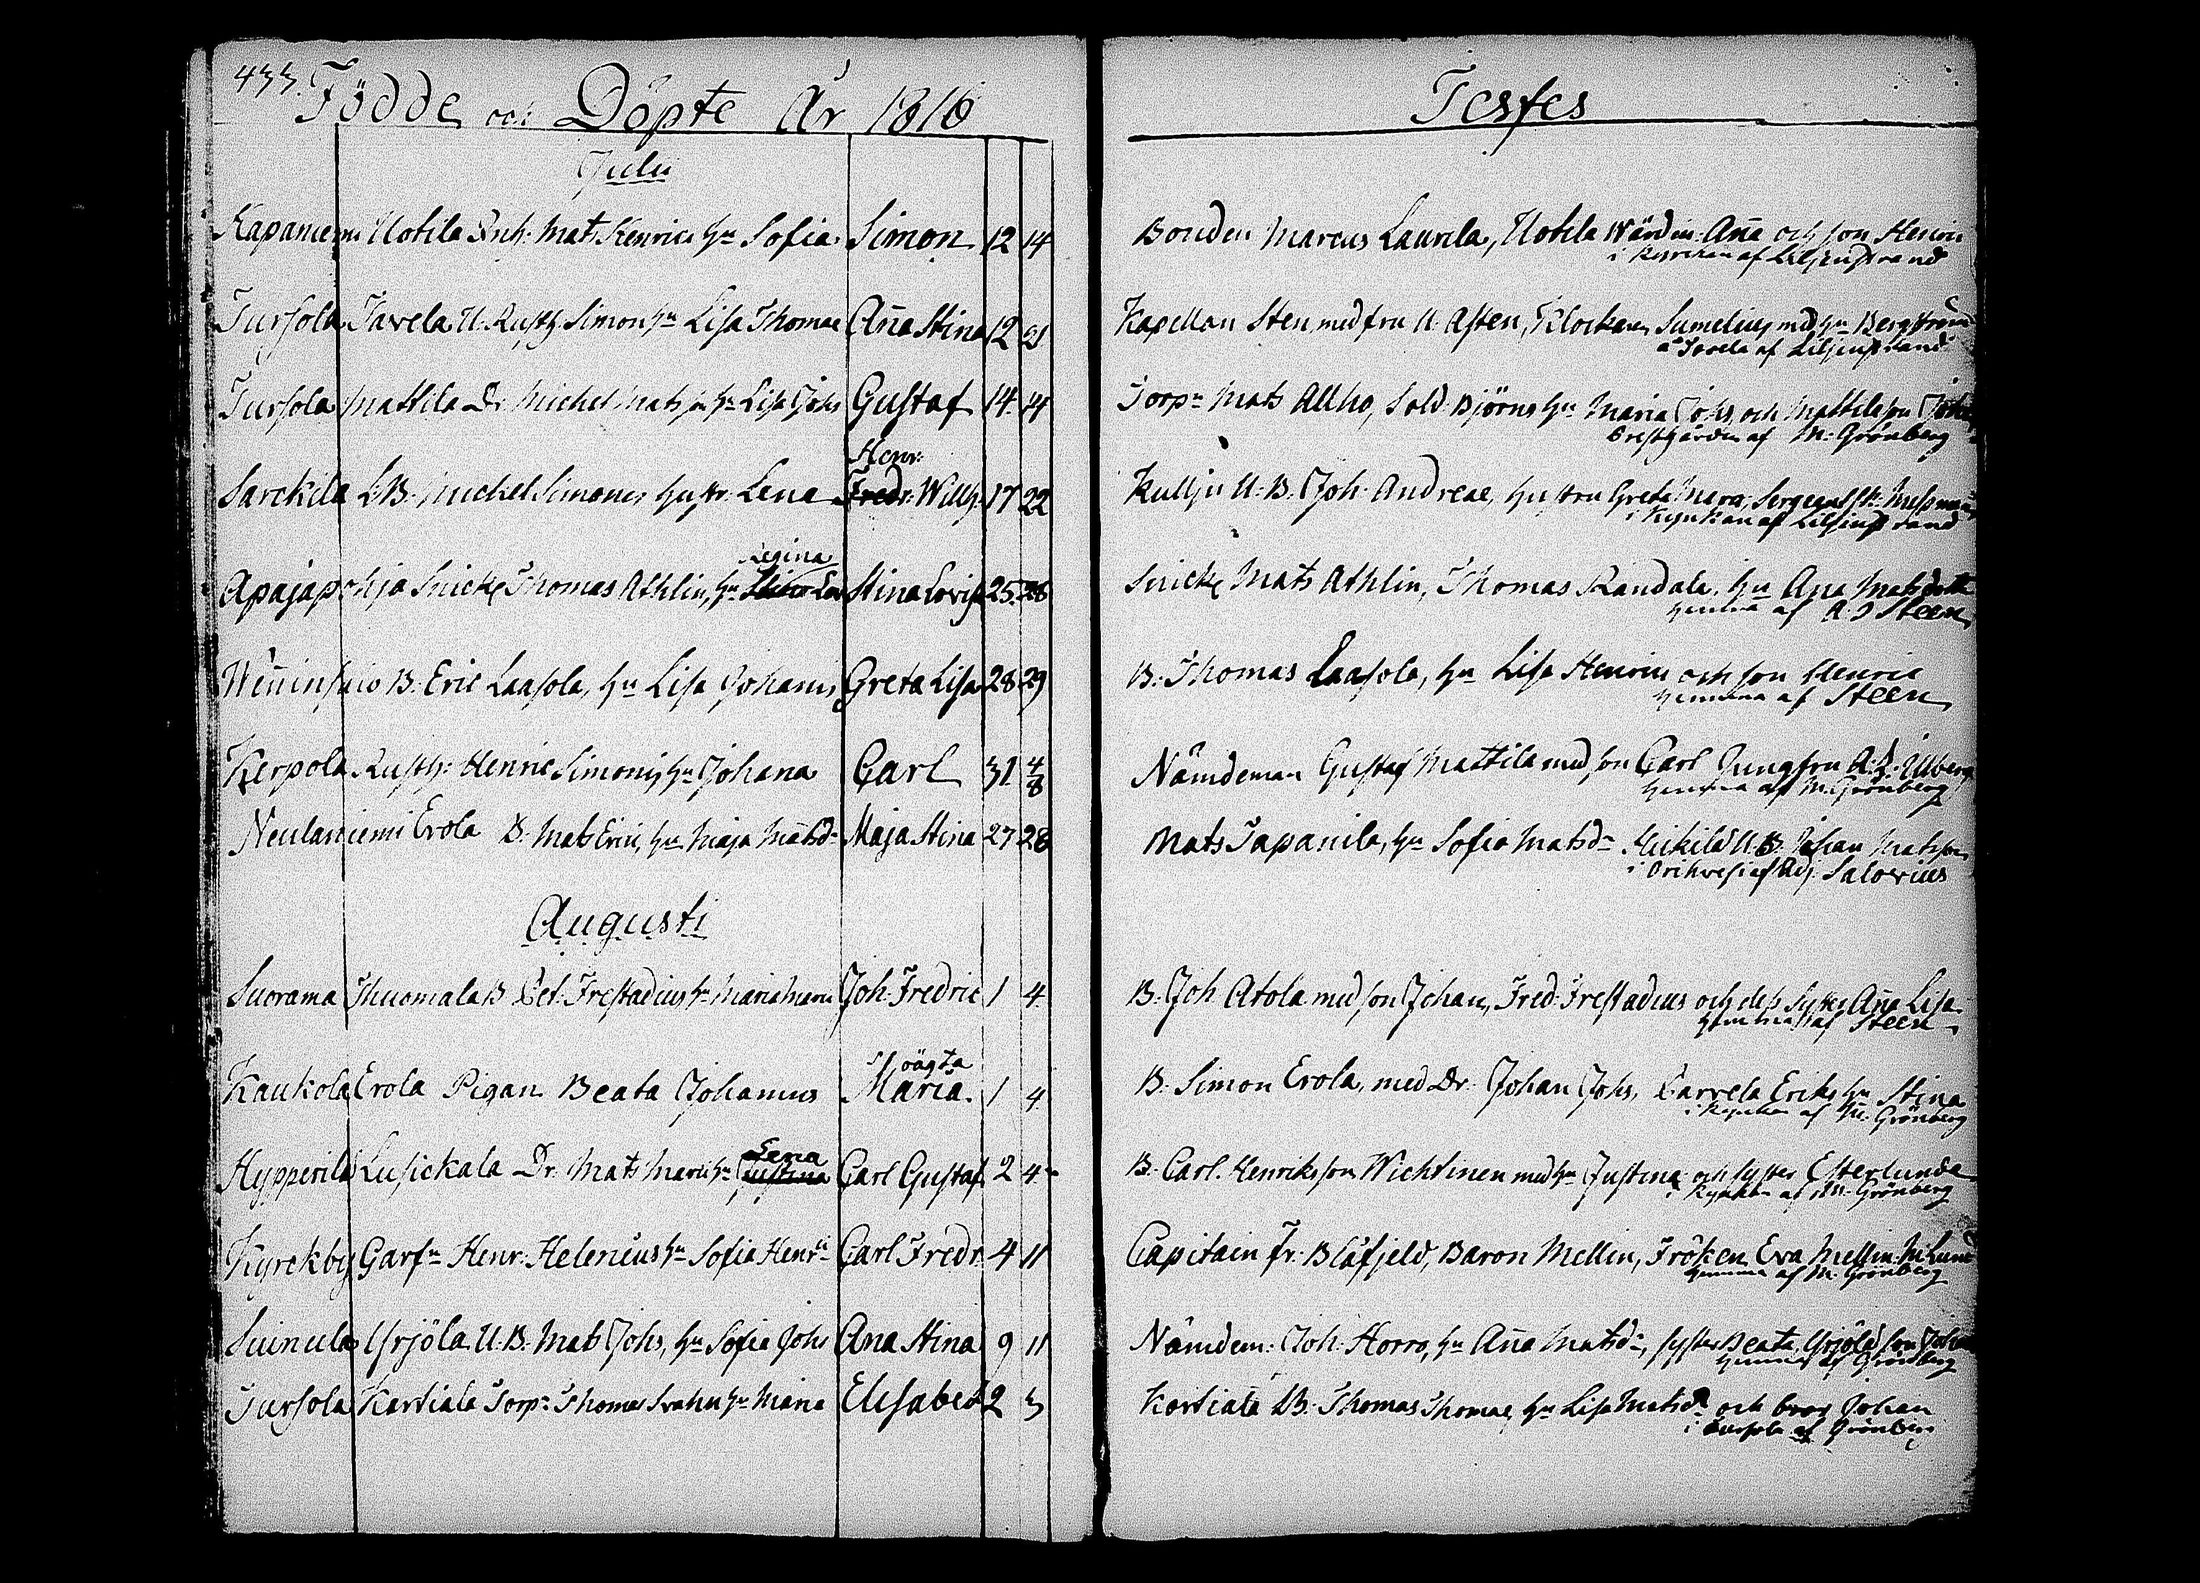 433. Födde och Döpte År 1816
Julii
Kapaniemi Uotila Inh: Mats Henrics hu Sofia Simon 12 14
Tursola Tavela U. Rusth. Simon hu Lisa Thomae Aña Stina 12 21
Tursola Mattila Dr Michel Matss hu Lisa Johs Gustaf 14 14
Henr:
Sarckila LB. Michel Simonis hustr: Lena Fredr. Willh. 17 22
Regina
Apajapohja Snick. Thomas Athlin, hu Stina Lovisa 25 28
Weñinsuio B: Eric Laasola, hu Lisa Johanis Greta Lisa 28 29
Kerpola Rusth: Henric Simonis hu Johana Carl 31 4/8
Neulaniemi Erola B. Mats Eric, hu Maja Matsd Maja Stina 27 28
Augusti
Suorama Thuomala B Pet. Frestadius hu Maria Mar Joh. Fredric 1 4
oägta
Kaukola Erola Pigan Beata Johannis Maria 1 4
Lena
Hypperilä Lusickala Dr. Mats Marci hu Justina Carl Gustaf 2 4
Kyrckby Garf. Henr: Helenius hu Sofia Henr. Carl Fredr. 4 11
Suinula Yrjölä U.B. Mats Johs, hu Sofia Johs Ana Stina 9 11
Tursola Kartiala Torp: Thomas Svahn hu Maria Elisabet 2 3
Testes
Bonden Marcus Laurila, Uotila Wärdin: Aña och son Henric
i kyrckan af Liljenstrand
Kapellan Sten, med fru U. Asten, Klockaren Sumelius med hu Bergström
å Tavela af Liljenstrand
Torp: Mats Allho, Sold. Björns hu Maria Johs, och Mattila son Johan
Prestgården af M: Grönberg
Kullju U.B. Joh: Andreae, hustru Greta Marci, Sergeant
i kyrckan af Liljenstrand
Snick. Mats Athlin, Thomas Randala, hu Ana Matsdotter
hemma af A. J Steen
B: Thomas Laasola, hu Lisa Henrics och son Henric
hemma af Steen
Nämdeman Gustaf Mattila med son Carl Jungfru A. L. Ulberg
hemma af M. Grönberg
Mats Tapanila, hu Sofia Matsd Mickilä U.B. Johan Matsson
i Orihvesi af Adj. Salovius
B. Joh Atola med son Johan, Fred: Frestadius och dess syster Aña Lisa
hemma af Steen
B. Simon Erola, med Dr. Johan Johs, Parvela Eriks hu Stina
i kyrckan af M. Grönberg
B. Carl Henriksson Wichtinen med hu Justina och syster Esterlunda
i kyrckan af M. Grönberg
Capitain Fr: Blåfjeld, Baron Mellin, Fröken Eva Mellin M. Lund
hemma af M. Grönberg
Nämdem: Joh: Horro, hu Aña Matsd, syster Beata, Yrjölä son Johan
hemma af Grönberg
Kartiala LB. Thomas Thomae, hu Lisa Matsd och bror Johan
i Tursola af Grönberg